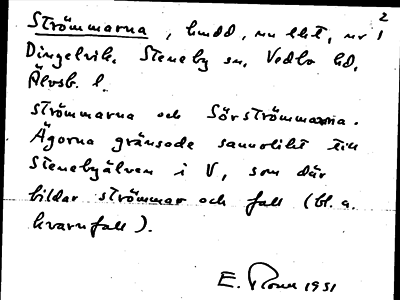 2
Strömmarna, hmdd, nu lht, nr 1
Dingelvik, Steneby sn, Vedbo hd,
Älvsb. l.
strömmarna och Sörströmmarna.
Ägorna gränsade samolikt till
Stenebyälven i V, som där
bildar strömmar och fall (bl. a.
kvarnfall).
E. 1931